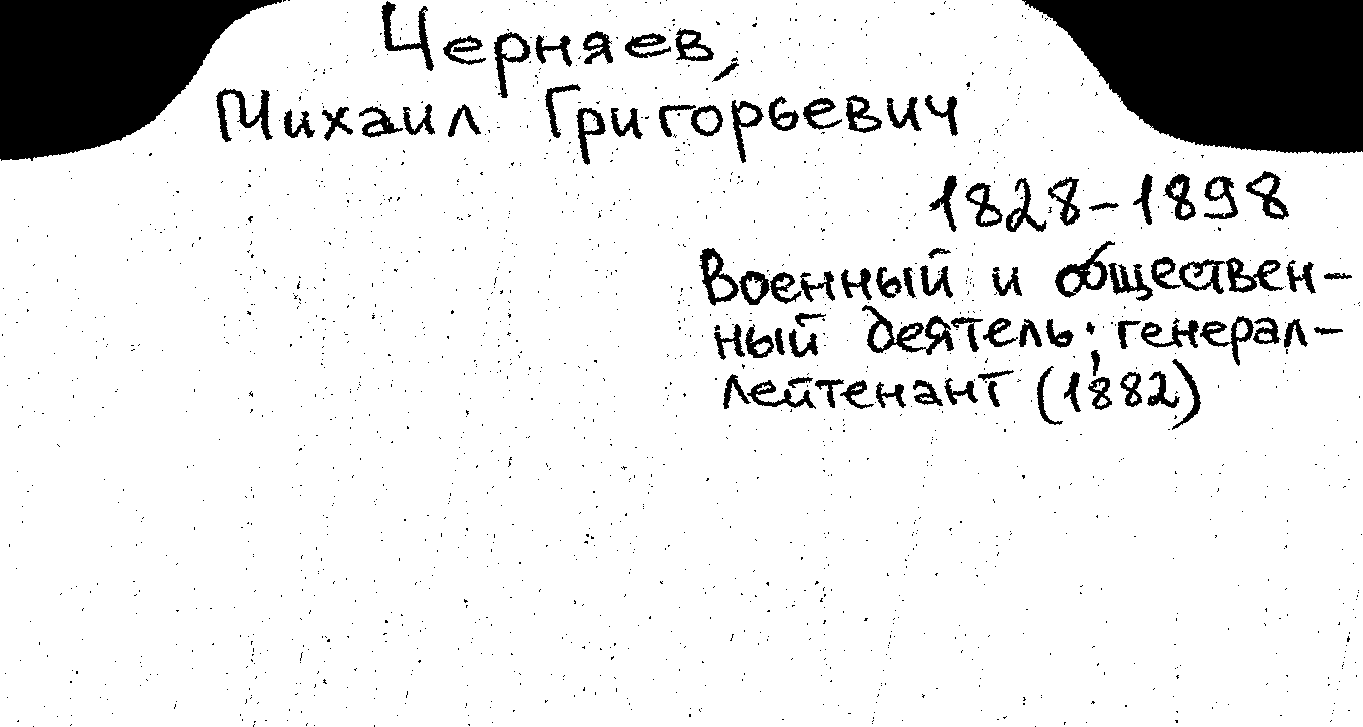 Черняев,
Михаил Григорьевич
1828-1898
Военный и обществен-
ный деятель; генерал-
лейтенант (1882)